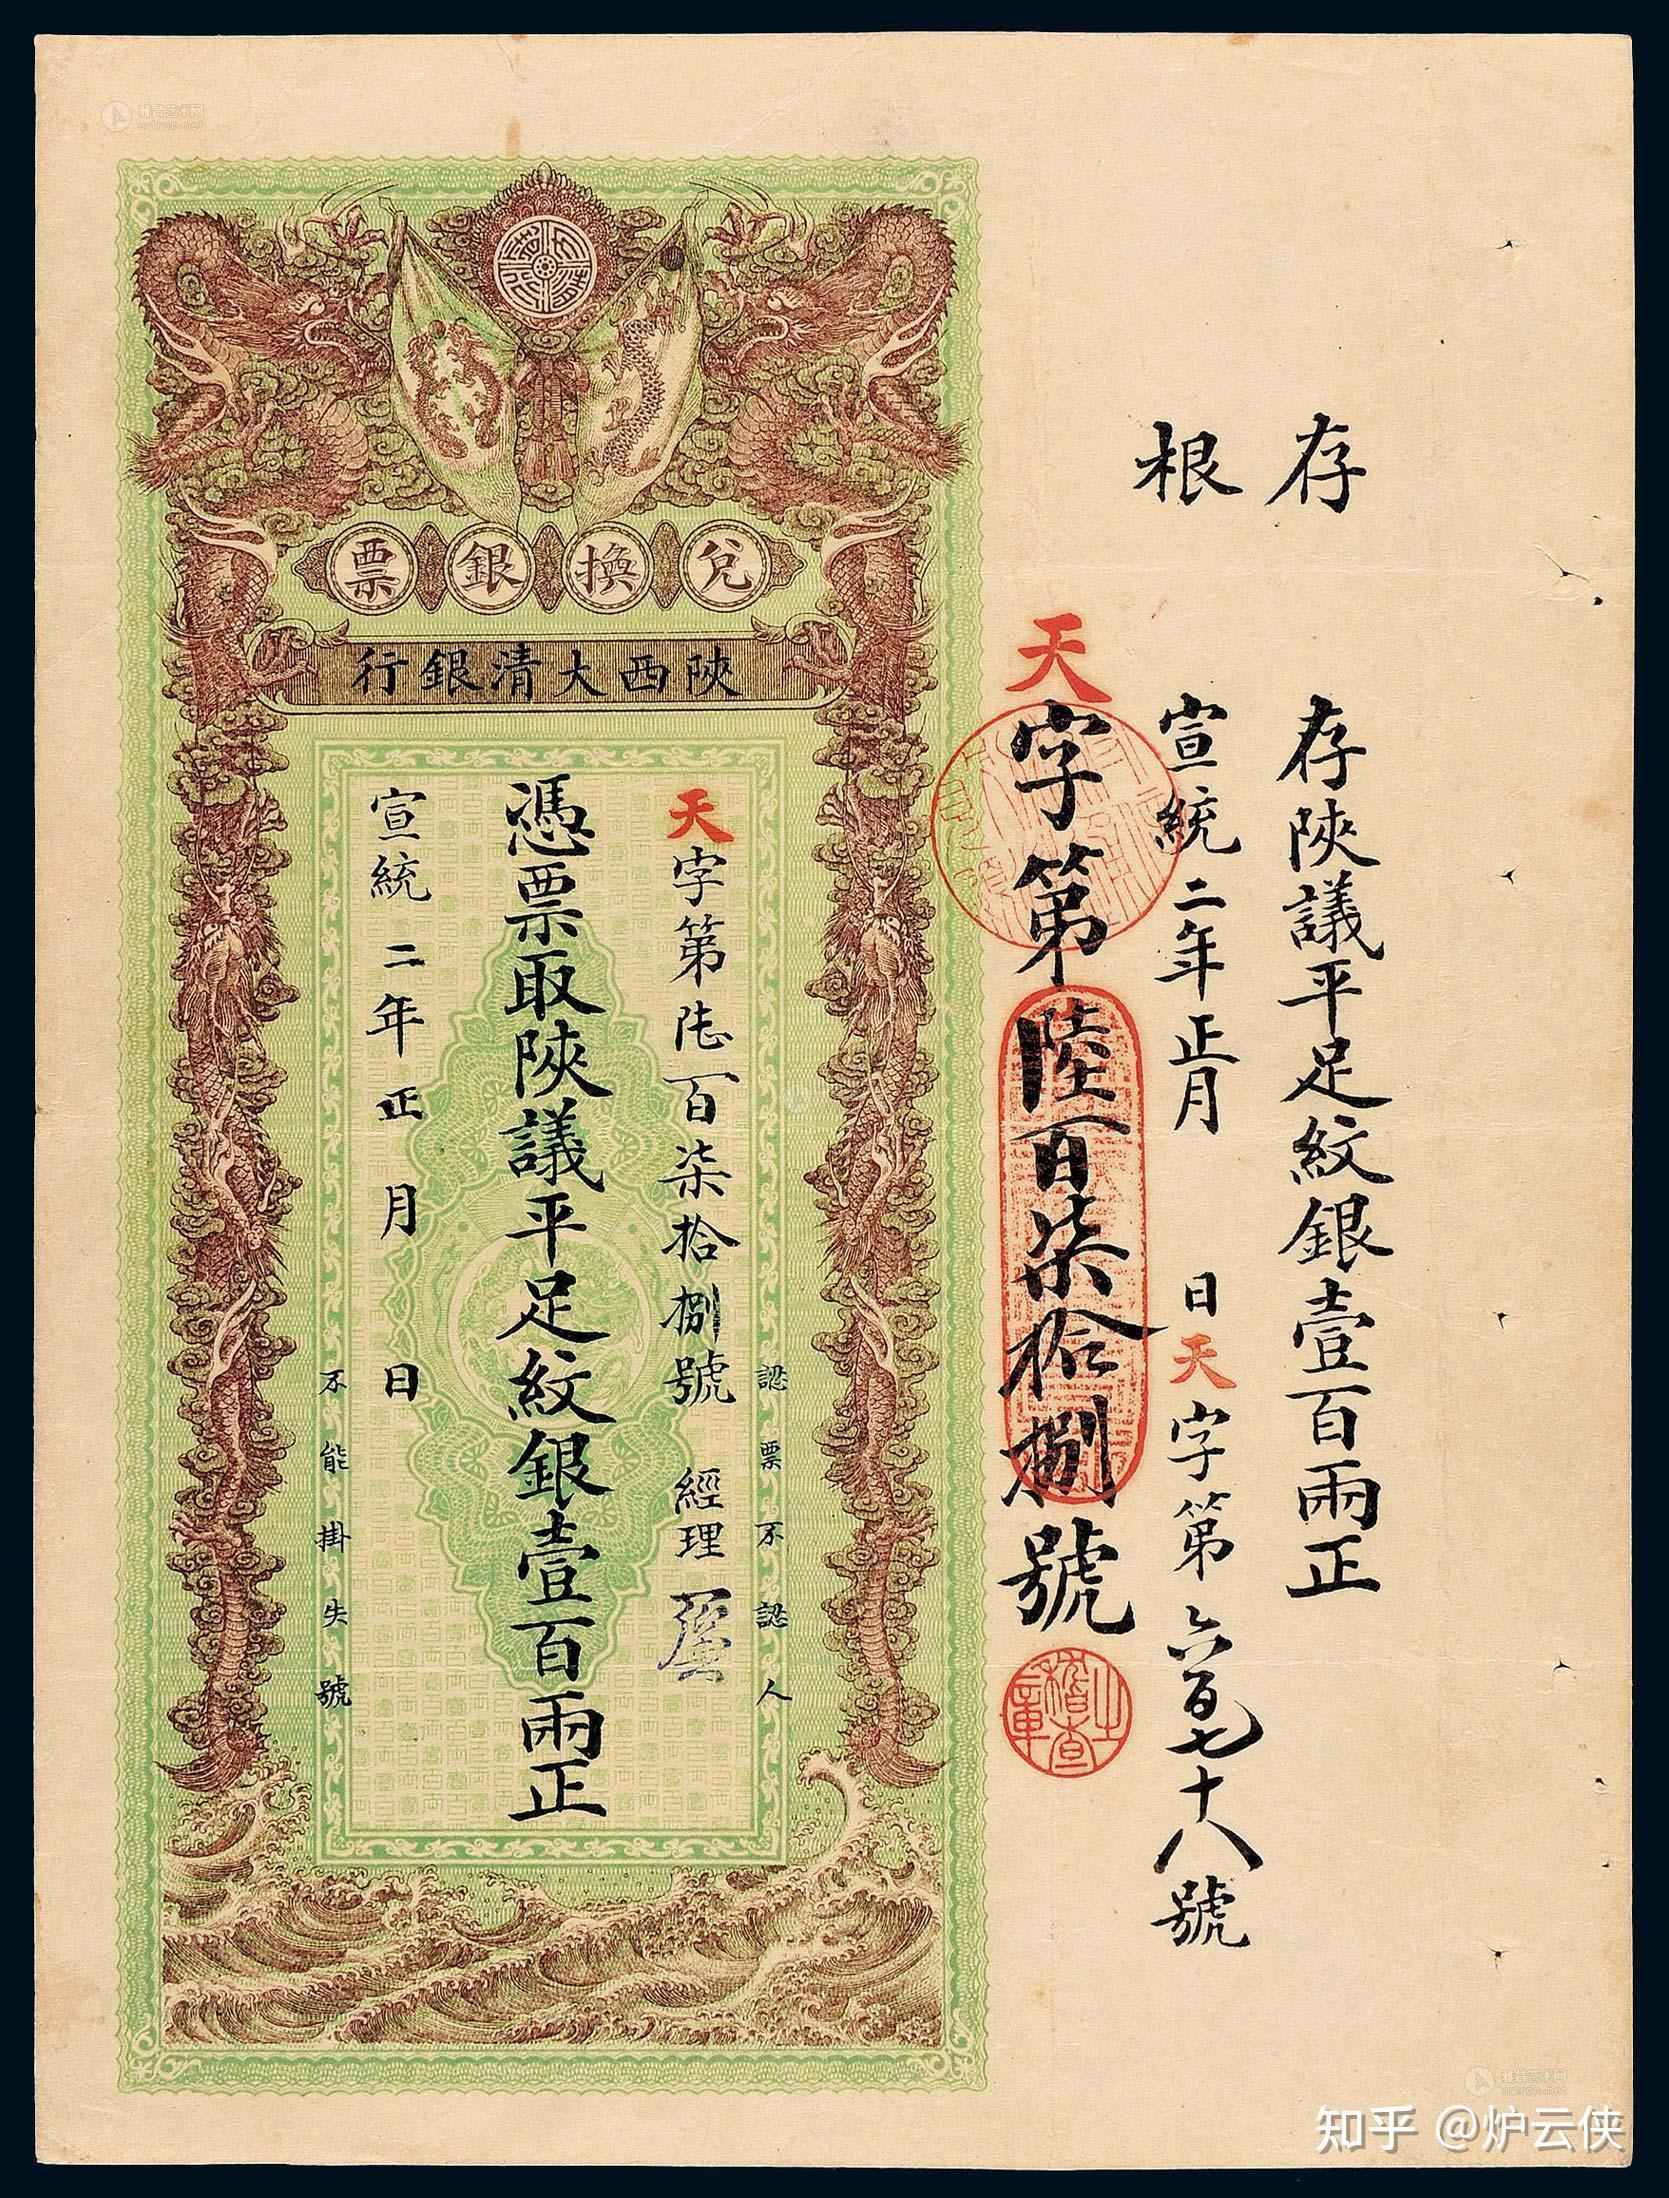 存根
存陝議平足紋銀壹百兩正
宣統二年正月 日天字第六百七十八號
天字第陸百柒拾捌號
稽查之章
兌換銀票
陝西大清銀行
認票不認人
天字第陸百柒拾捌號 經理
憑票取陝議平足紋銀壹百兩正
宣統二年正月 日
不能掛失號
雅昌艺术网
artron.net
雅昌艺术网
artron.net
知乎 @炉云侠